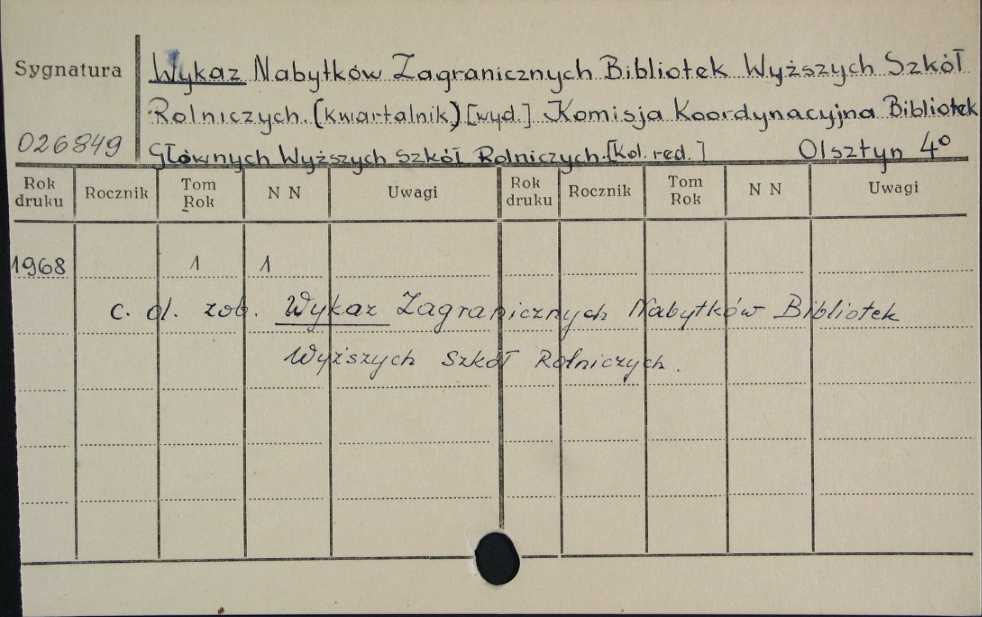 Sygnatura
026849
Wykaz Nabytków Zagranicznych Bibliotek Wyższych Szkół
Rolniczych. (kwartalnik) [wyd.] Komisja Koordynacyjna Bibliotek
Głównych Wyższych Szkół Rolniczych. [Kol. red.] Olsztyn 4°
Rok druku Rocznik Tom Rok N N Uwagi Rok druku Rocznik Tom Rok N N Uwagi
1968 1 1
c. d. zob. Wykaz Zagranicznych Nabytków Bibliotek
Wyższych Szkół Rolniczych.